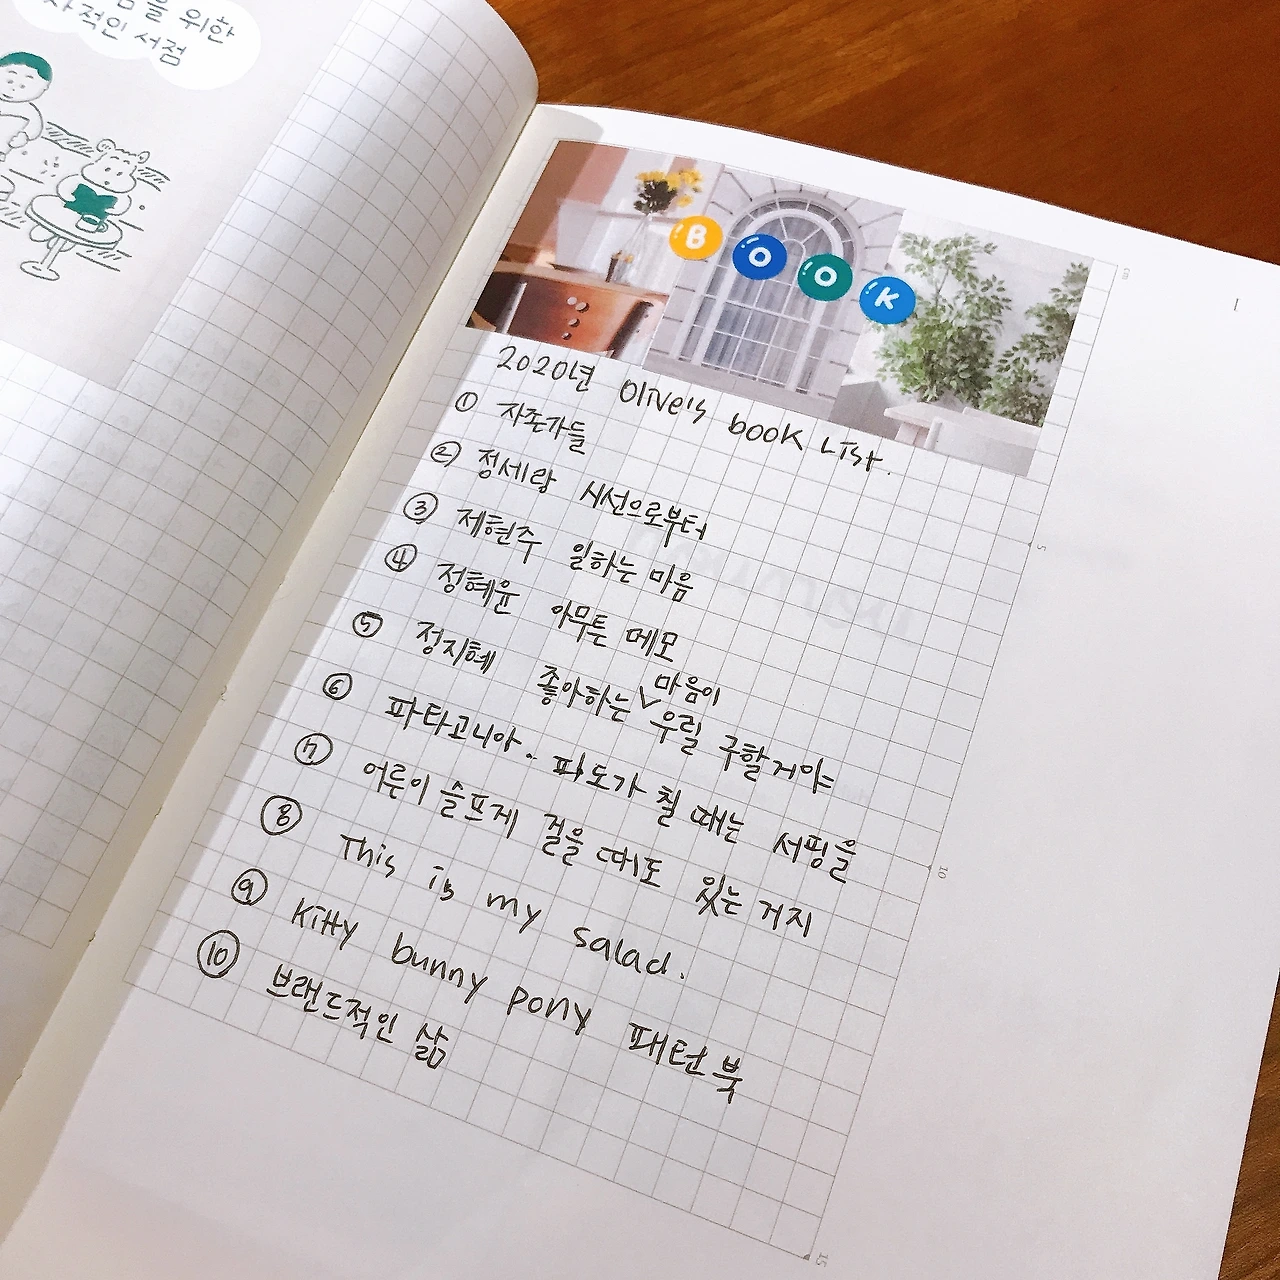 을 위한
사적인 서점
BOOK
2020년 Olive's book List.
① 자존가들
② 정세랑 시선으로부터
③ 제현주 일하는 마음
④ 정혜윤 아무튼 메모
⑤ 정지혜 좋아하는 ∨마음이 우릴 구할거야
⑥ 파타고니아.. 파도가 칠 때는 서핑을
⑦ 어른이 슬프게 걸을 때도 있는 거지
⑧ This is my salad.
⑨ Kitty bunny pony 패턴북
⑩ 브랜드적인 삶
cm
5
10
15